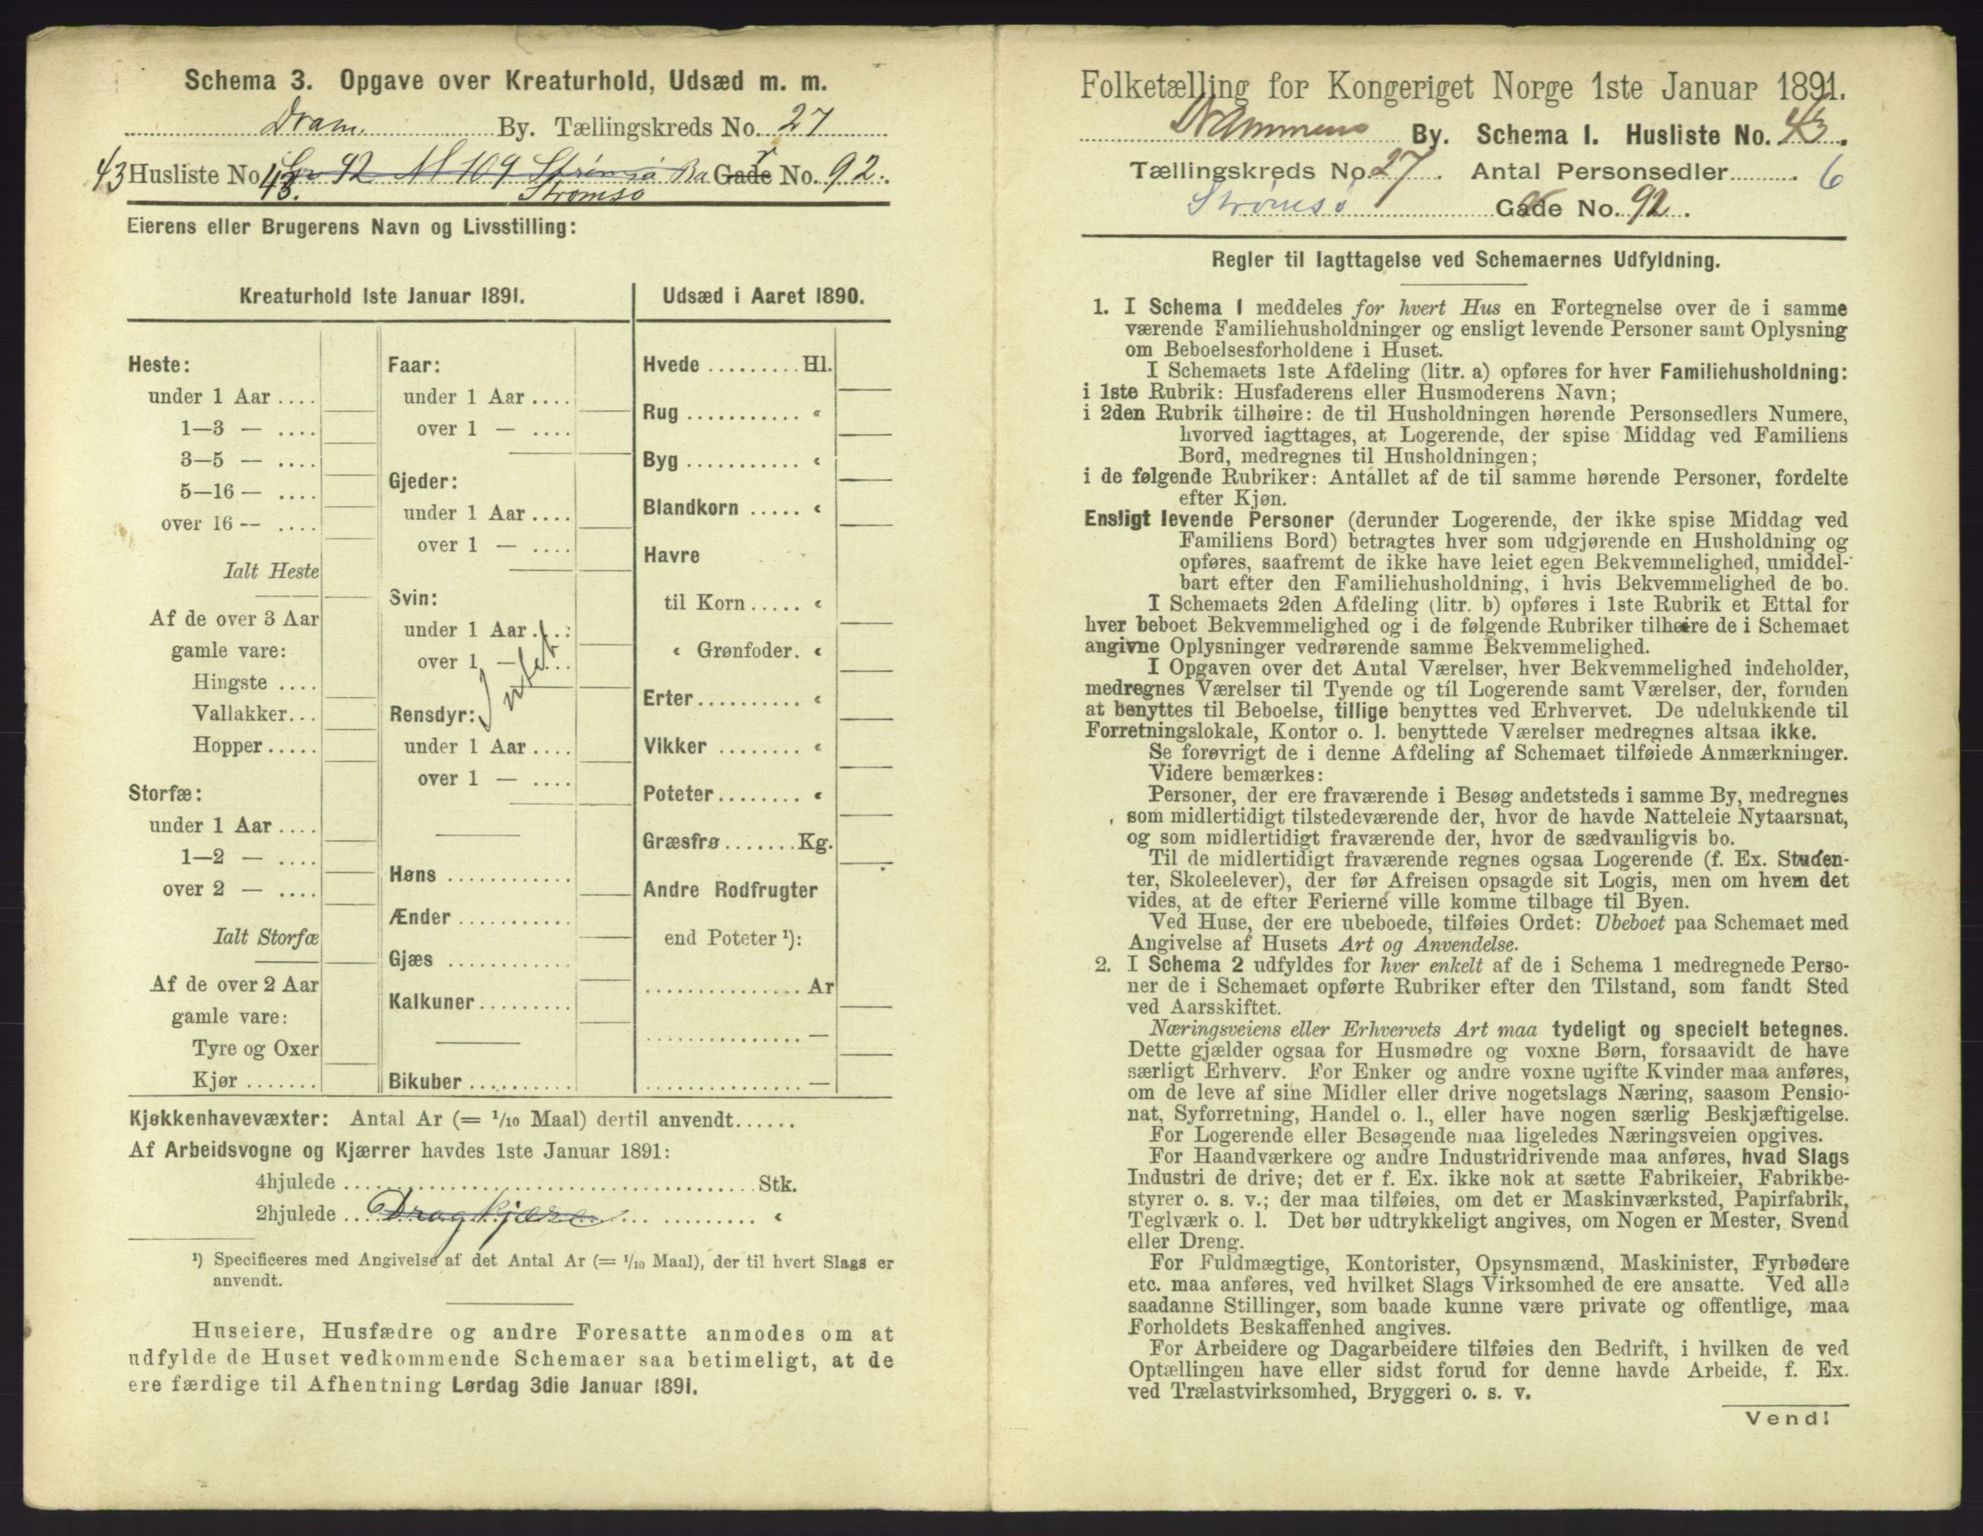 Schema 3. Opgave over Kreaturhold, Udsæd m. m.
Dram. By. Tællingskreds No. 27
43 Husliste No. 43. Gr 92 M 109 Strømsø Ba Gade No. 92.
Strømsø
Eierens eller Brugerens Navn og Livsstilling:
Kreaturhold 1ste Januar 1891.
Heste:
under 1 Aar ....
1—3 — ....
3—5 — ....
5—16 — ....
over 16 — ....
Ialt Heste
Af de over 3 Aar
gamle vare:
Hingste ....
Vallakker...
Hopper.....
Storfæ:
under 1 Aar ....
1—2 — ....
over 2 — ....
Ialt Storfæ
Af de over 2 Aar
gamle vare:
Tyre og Oxer
Kjør .......
Faar:
under 1 Aar ....
over 1 — ....
Gjeder:
under 1 Aar ....
over 1 — ....
Svin:
under 1 Aar ....
over 1 — ....
Intet
Rensdyr:
under 1 Aar ....
over 1 — ....
Høns ............
Ænder ...........
Gjæs ............
Kalkuner.........
Bikuber ..........
Udsæd i Aaret 1890.
Hvede ......... Hl.
Rug ........... «
Byg ........... «
Blandkorn ..... «
Havre
til Korn ..... «
« Grønfoder. «
Erter.......... «
Vikker ........ «
Poteter........ «
Græsfrø ....... Kg.
Andre Rodfrugter
end Poteter ¹):
............... Ar
............... —
............... —
Kjøkkenhavevæxter: Antal Ar (= 1/10 Maal) dertil anvendt......
Af Arbeidsvogne og Kjærrer havdes 1ste Januar 1891:
4hjulede ........................................ Stk.
2hjulede ... Dragkjære ............ «
¹) Specificeres med Angivelse af det Antal Ar (= 1/10 Maal), der til hvert Slags er
anvendt.
Huseiere, Husfædre og andre Foresatte anmodes om at
udfylde de Huset vedkommende Schemaer saa betimeligt, at de
ere færdige til Afhentning Lørdag 3die Januar 1891.
Folketælling for Kongeriget Norge 1ste Januar 1891.
Drammens By. Schema 1. Husliste No. 43.
Tællingskreds No. 27. Antal Personsedler .......... 6
Strømsø Gade No. 92.
Regler til Iagttagelse ved Schemaernes Udfyldning.
1. I Schema 1 meddeles for hvert Hus en Fortegnelse over de i samme
værende Familiehusholdninger og ensligt levende Personer samt Oplysning
om Beboelsesforholdene i Huset.
I Schemaets 1ste Afdeling (litr. a) opføres for hver Familiehusholdning:
i 1ste Rubrik: Husfaderens eller Husmoderens Navn;
i 2den Rubrik tilhøire: de til Husholdningen hørende Personsedlers Numere,
hvorved iagttages, at Logerende, der spise Middag ved Familiens
Bord, medregnes til Husholdningen;
i de følgende Rubriker: Antallet af de til samme hørende Personer, fordelte
efter Kjøn.
Ensligt levende Personer (derunder Logerende, der ikke spise Middag ved
Familiens Bord) betragtes hver som udgjørende en Husholdning og
opføres, saafremt de ikke have leiet egen Bekvemmelighed, umiddel-
bart efter den Familiehusholdning, i hvis Bekvemmelighed de bo.
I Schemaets 2den Afdeling (litr. b) opføres i 1ste Rubrik et Ettal for
hver beboet Bekvemmelighed og i de følgende Rubriker tilhøire de i Schemaet
angivne Oplysninger vedrørende samme Bekvemmelighed.
I Opgaven over det Antal Værelser, hver Bekvemmelighed indeholder,
medregnes Værelser til Tyende og til Logerende samt Værelser, der, foruden
at benyttes til Beboelse, tillige benyttes ved Erhvervet. De udelukkende til
Forretningslokale, Kontor o. l. benyttede Værelser medregnes altsaa ikke.
Se forøvrigt de i denne Afdeling af Schemaet tilføiede Anmærkninger.
Videre bemærkes:
Personer, der ere fraværende i Besøg andetsteds i samme By, medregnes
som midlertidigt tilstedeværende der, hvor de havde Natteleie Nytaarsnat,
og som midlertidigt fraværende der, hvor de sædvanligvis bo.
Til de midlertidigt fraværende regnes ogsaa Logerende (f. Ex. Studen-
ter, Skoleelever), der før Afreisen opsagde sit Logis, men om hvem det
vides, at de efter Ferierne ville komme tilbage til Byen.
Ved Huse, der ere ubeboede, tilføies Ordet: Ubeboet paa Schemaet med
Angivelse af Husets Art og Anvendelse.
2. I Schema 2 udfyldes for hver enkelt af de i Schema 1 medregnede Perso-
ner de i Schemaet opførte Rubriker efter den Tilstand, som fandt Sted
ved Aarsskiftet.
Næringsveiens eller Erhvervets Art maa tydeligt og specielt betegnes.
Dette gjælder ogsaa for Husmødre og voxne Børn, forsaavidt de have
særligt Erhverv. For Enker og andre voxne ugifte Kvinder maa anføres,
om de leve af sine Midler eller drive nogetslags Næring, saasom Pensio-
nat, Syforretning, Handel o. l., eller have nogen særlig Beskjæftigelse.
For Logerende eller Besøgende maa ligeledes Næringsveien opgives.
For Haandværkere og andre Industridrivende maa anføres, hvad Slags
Industri de drive; det er f. Ex. ikke nok at sætte Fabrikeier, Fabrikbe-
styrer o. s. v.; der maa tilføies, om det er Maskinværksted, Papirfabrik,
Teglværk o. l. Det bør udtrykkeligt angives, om Nogen er Mester, Svend
eller Dreng.
For Fuldmægtige, Kontorister, Opsynsmænd, Maskinister, Fyrbødere
etc. maa anføres, ved hvilket Slags Virksomhed de ere ansatte. Ved alle
saadanne Stillinger, som baade kunne være private og offentlige, maa
Forholdets Beskaffenhed angives.
For Arbeidere og Dagarbeidere tilføies den Bedrift, i hvilken de ved
Optællingen have eller sidst forud for denne havde Arbeide, f. Ex.
ved Trælastvirksomhed, Bryggeri o. s. v.
Vend!